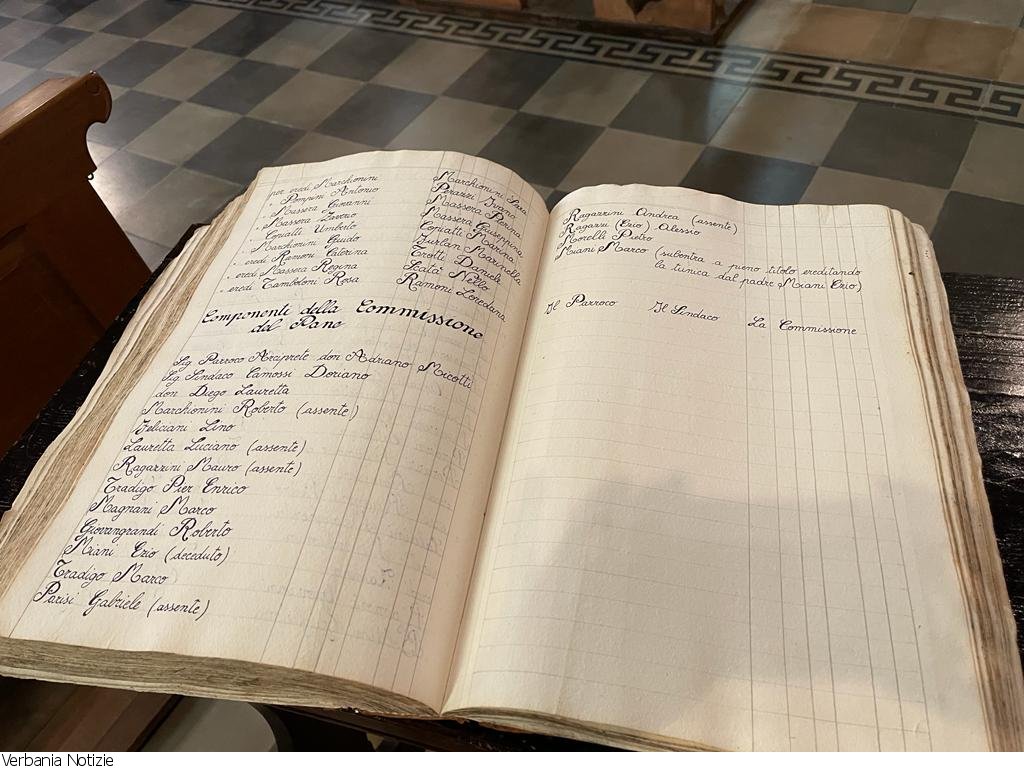 per eredi Marchionini Marchionini Sara
" Pompini Antonio Perazzi Ivana
" Massera Giovanni Massera Pierina
" Massera Zaverio Massera Giuseppina
" Copiatti Umberto Copiatti Marina
" Marchionini Guido Furlan Marinella
" eredi Ramoni Caterina Trotti Daniela
" eredi Massera Regina Scata' Nello
" eredi Tamboloni Rosa Ramoni Loredana
Componenti della Commissione
del Pane
Sig. Parroco Arciprete don Adriano Micotti
Sig. Sindaco Camossi Doriano
don Diego Lauretta
Marchionini Roberto (assente)
Feliciani Lino
Lauretta Luciano (assente)
Ragazzini Mauro (assente)
Tradigo Pier Enrico
Magnani Marco
Giovangrandi Roberto
Miani Ezio (deceduto)
Tradigo Marco
Parisi Gabriele (assente)
Ragazzini Andrea (assente)
Ragazzi (Ezio) Alessio
Morelli Pietro
Miani Marco (subentra a pieno titolo ereditando
la tunica dal padre Miani Ezio)
Il Parroco Il Sindaco La Commissione
Verbania Notizie